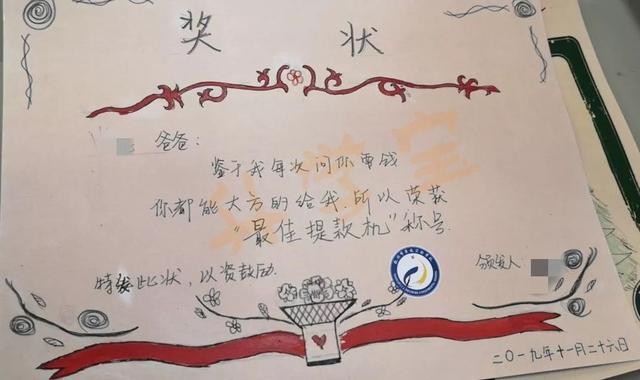 奖 状
爸爸:
鉴于我每次问你要钱
你都能大方的给我,所以荣获
“最佳提款机”称号.
特发此状,以资鼓励.
颁发人:
二〇一九年十一月二十六日